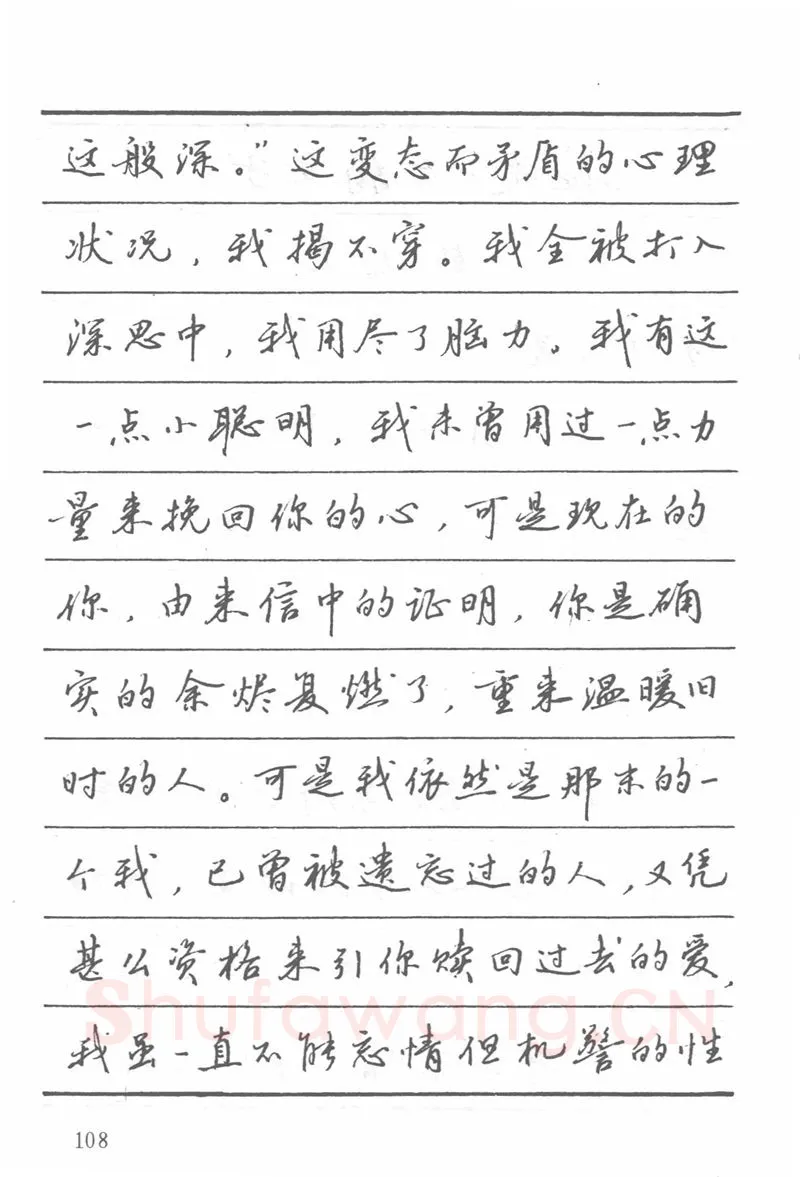 这般深。”这变态而矛盾的心理
状况，我揭不穿。我全被打入
深思中，我用尽了脑力。我有这
一点小聪明，我未曾用过一点力
量来挽回你的心，可是现在的
你，由来信中的证明，你是确
实的余烬复燃了，重来温暖旧
时的人。可是我依然是那末的一
个我，已曾被遗忘过的人，又凭
甚么资格来引你赎回过去的爱，
我虽一直不能忘情但机警的性
Shufawang.CN
108